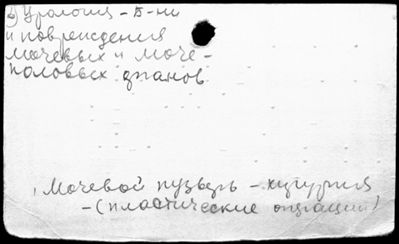 9) Урология - Б-ни
и повреждения
мочевых и моче-
половых органов
Мочевой пузырь - хирургия
- (пластические операции)